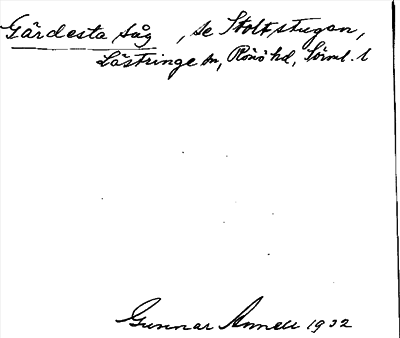 Gärdesta såg, se Stoltstugan,
Lästringe sn, Rönö hd, Sörml. l
Gunnar Annell 1932